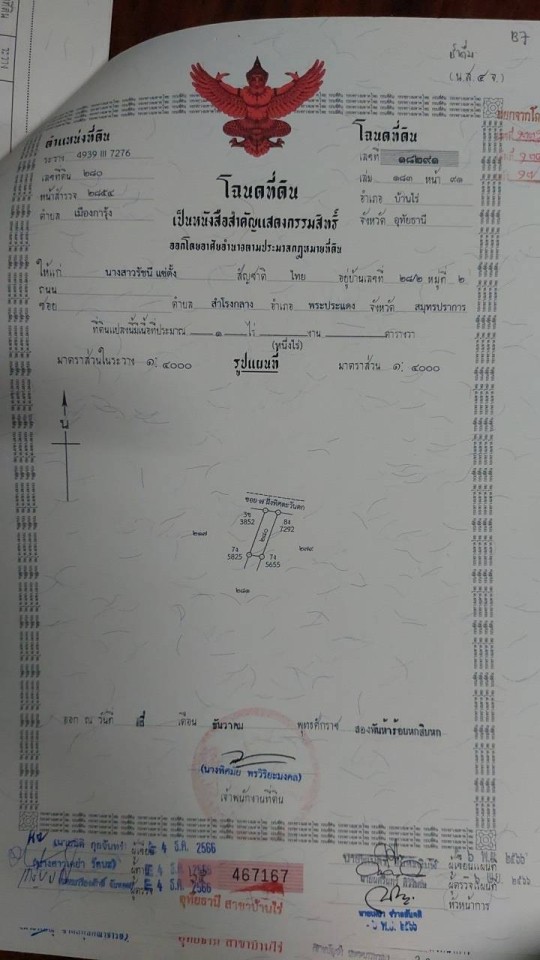 B7
(น.ส.๔ จ.)
ตำแหน่งที่ดิน
ระวาง 4939 III 7276
เลขที่ดิน ๒๘๐
หน้าสำรวจ ๒๘๕๔
ตำบล เมืองการุ้ง
โฉนดที่ดิน
เลขที่ ๑๘๒๙๑
เล่ม ๑๘๓ หน้า ๙๑
อำเภอ บ้านไร่
จังหวัด อุทัยธานี
โฉนดที่ดิน
เป็นหนังสือสำคัญแสดงกรรมสิทธิ์
ออกโดยอาศัยอำนาจตามประมวลกฎหมายที่ดิน
ให้แก่ นางสาวรัชนี แซ่ตั้ง สัญชาติ ไทย อยู่บ้านเลขที่ ๒๘/๒ หมู่ที่ ๒
ถนน
ซอย ตำบล สำโรงกลาง อำเภอ พระประแดง จังหวัด สมุทรปราการ
ที่ดินแปลงนี้มีเนื้อที่ประมาณ ๑ ไร่ งาน ตารางวา
(หนึ่งไร่)
มาตราส่วนในระวาง ๑: ๔๐๐๐ รูปแผนที่ มาตราส่วน ๑: ๔๐๐๐
น
ซอย ๗ ฝั่งทิศตะวันตก
3ช 3852
8ง 7292
๒๘๐
๒๗๙
7ง 5825
7ง 5655
๒๘๑
ออก ณ วันที่ สี่ เดือน ธันวาคม พุทธศักราช สองพันห้าร้อยหกสิบหก
(นางพิศมัย พรวิริยะมงคล)
เจ้าพนักงานที่ดิน
4 ธ.ค. 2566
4 ธ.ค. 2566
467167
อุทัยธานี สาขาบ้านไร่
อุทัยธานี สาขาบ้านไร่